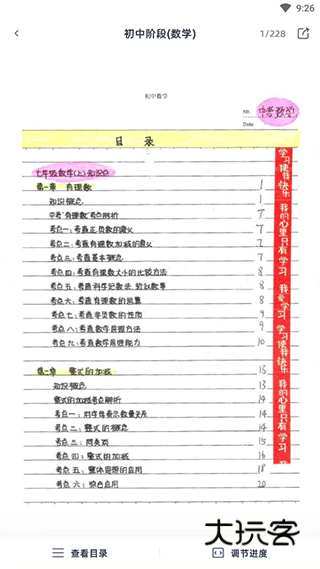 9:26
初中阶段(数学)
1/228
初中数学
No. 中考数学
Date
目 录
七年级数学(上)知识点
第一章 有理数 1
知识概念 1
中考"有理数"考点剖析 7
考点一:考查正负数的意义 7
考点二:考查有理数加减的意义 7
考点三:考查基本概念 7
考点四:考查有理数大小的比较方法 8
考点五:考查科学记数法、验以数单 8
考点六:考查有理数的运算 8
考点七:考查非负数的性质 9
考点八:考查数学思想方法 9
考点九:考查数学思维能力 10
第二章 整式的加减 13
知识概念 13
整式的加减考点解析 14
考点一:用字母表示数量关系 14
考点二:整式的概念 14
考点三:同类项 15
考点四:整式的加减 16
考点五:整体思想的应用 18
考点六:综合应用 20
学习使我快乐 我的心里只有学习 我爱学习 学习使我快乐 我的心里只有学习
大玩客
www.dawnk.cn
查看目录
调节进度